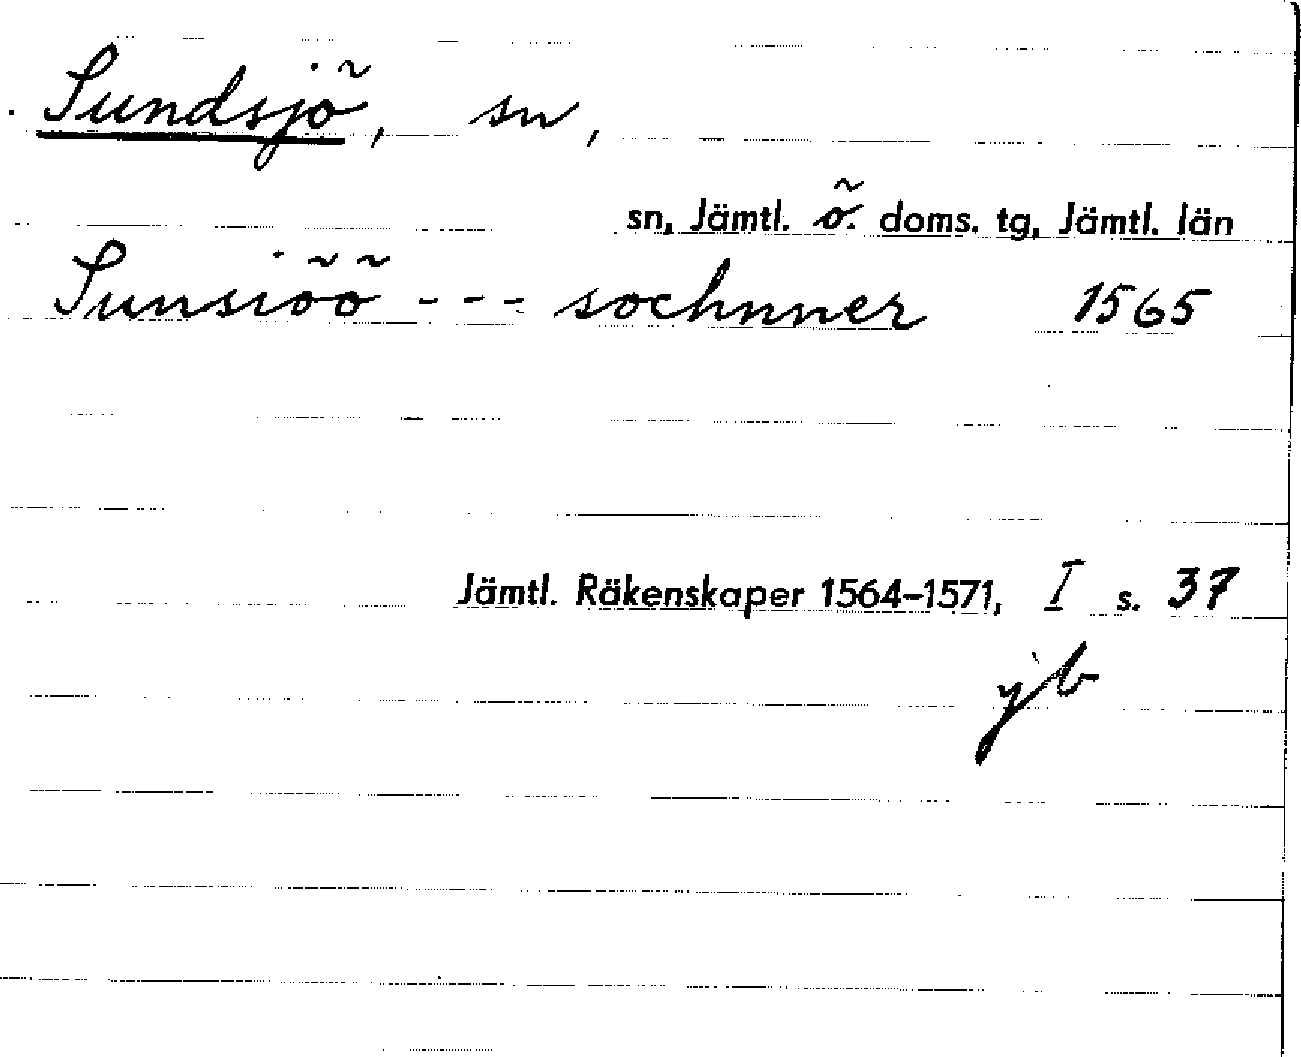 Sundsjö, sn,
sn, Jämtl. ö. doms. tg, Jämtl. län
Sunsiöö - - - sochnner 1565
Jämtl. Räkenskaper 1564–1571, I s. 37
jb